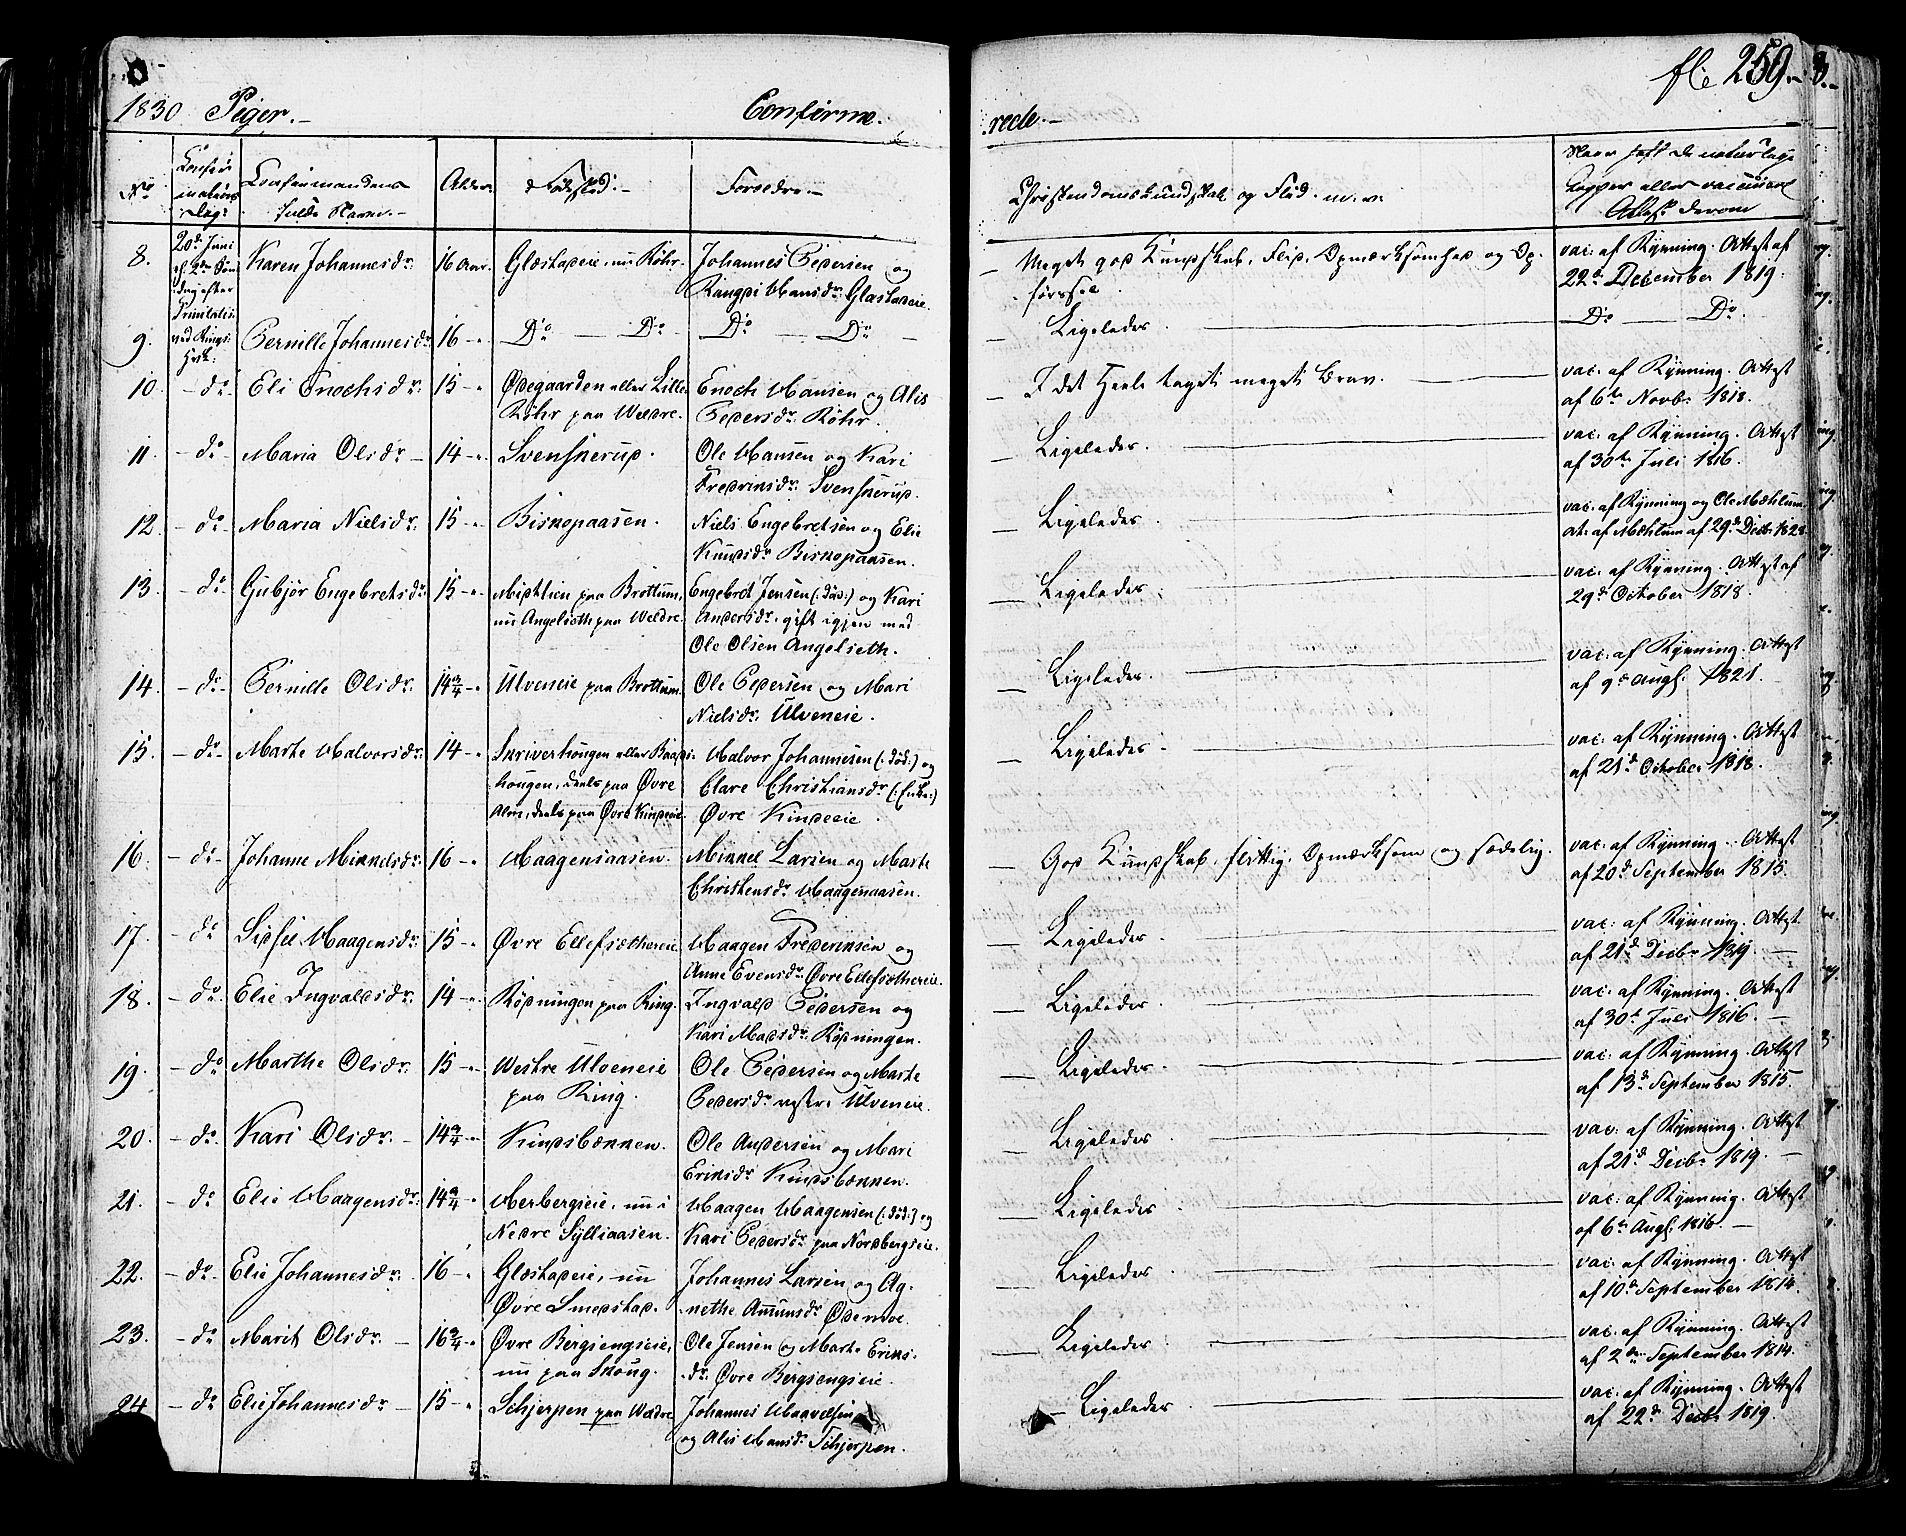 fl: 259.
1830 Piger.- Confirme- rede.-
No Confirmations Dag: Confirmandens fulde Navne.- Alder Fødested.- Forældre.- Christendomskundskab og Flid. m.v. Naar havt de naturlige
Kopper eller vaccineret
Attest derom
8. 20de Juni el. 2den Søndag efter Trinitatis ved Rings: Kirke: Karen Johannesdr. 16 Aar. Glæstadeie, nu Røhr. Johannes Pedersen og
Rangdi Hansdr. Glæstadeie. Meget god Kundskab, Flid, Opmærksomhed og Op-
førsel. vac: af Rynning. Attest af
22de December 1819.
9. Pernille Johannesdr. 16 -" Do - Do Do - Do - Ligeledes. Do - Do.
10. - do - Eli Enochsdr. 15 -" Ødegaarden eller Lille
Røhr paa Weldre. Enoch Hansen og Alis
Pedersdr. Røhr. I det Heele taget meget brav. vac: af Rynning. Attest
af 6te Novbr. 1818.
11. - do Maria Olsdr. - 14 -" Svenskerup. Ole Hansen og Kari
Fredriksdr. Svenskerup. Ligeledes. vac: af Rynning. Attest
af 30te Juli 1816.
12. - do - Maria Nielsdr. 15 -" Biskopaasen. Niels Engebretsen og Elie
Knudsdr. Biskopaasen. Ligeledes. vac: af Rynning og Ole Mæhlum.
at: af Mæhlum af 29de Decbr. 1828.
13. - do Gubjør Engebretsdr. 15 -" Mistlien paa Brøttum,
nu Angelseth paa Weldre. Engebret Jensen (: død :) og Kari
Andersdr. gift igjen med
Ole Olsen Angelseth. Ligeledes. vac: af Rynning. Attest af
29de October 1818.
14. - do - Pernille Olsdr. 14 3/4 -" Ulveneie paa Brøttum. Ole Pedersen og Mari
Nielsdr. Ulveneie. Ligeledes. vac: af Rynning. Attest
af 9de Augl: 1821.
15. - do - Marte Halvorsdr. 14 -" Skriverhougen eller
hougen, deels paa Øvre
Alm, deels paa Øvre Kindeeie. Halvor Johannesen (: død :) og
Clare Christiansdr. (: Enke :)
Øvre Kindeeie. Ligeledes. vac: af Rynning. Attest
af 21de October 1818.
16. - do - Johanne Mikkelsdr. 16 -" Haagenaasen. Mikkel Larsen og Marte
Christensdr. Haagenaasen. God Kundskab, flittig, Opmærksom og sædelig. vac: af Rynning. Attest
af 20de September 1815.
17. - do Sidsie Haagensdr. 15 -" Øvre Ellefsæthereie. Haagen Frederiksen og
Anne Evensdr. Øvre Ellefsæthereie. Ligeledes. vac: af Rynning. Attest
af 21de Decbr. 1819.
18. - do. Elie Ingvaldsdr. 14 -" Rødningen paa Ring. Ingvald Pedersen og
Kari Madsdr. Rødningen. Ligeledes. vac: af Rynning. Attest
af 30te Juli 1816.
19. - do Marthe Olsdr. 15 -" Westre Ulveneie
paa Ring. Ole Pedersen og Marte
Pedersdr. vestre Ulveneie. Ligeledes. vac: af Rynning. Attest
af 13de September 1815.
20. - do. Kari Olsdr. - 14 3/4 -" Kindsbækken. Ole Andersen og Mari
Eriksdr. Kindsbækken. Ligeledes. vac: af Rynning. Attest
af 21de Decbr. 1819.
21. - do Elie Haagensdr. 14 3/4 -" Herbergseie, nu i
Nedre Sylliaasen. Haagen Haagensen (: død :) og
Kari Pedersdr. paa Nordbergseie. Ligeledes. vac: af Rynning. Attest
af 6te Augl: 1816.
22. - do - Elie Johannesdr. 16 -" Glæstadeie, nu
Øvre Smedstad. Johannes Larsen og Ag-
nethe Amundsdr. Ødemoe. Ligeledes. vac: af Rynning. Attest
af 10de September 1814.
23. - do Marit Olsdr. - 16 3/4 -" Øvre Bergsengseie,
nu paa Skoug. Ole Jensen og Marte Eriks-
dr. Øvre Bergsengseie. Ligeledes. vac: af Rynning. Attest
af 2den September 1814.
24. - do Elie Johannesdr. - 15 -" Schjerpen paa Weldre Johannes Haavelsen
og Alis Hansdr. Schjerpen. Ligeledes. vac: af Rynning. Attest
af 22de Decbr. 1819.